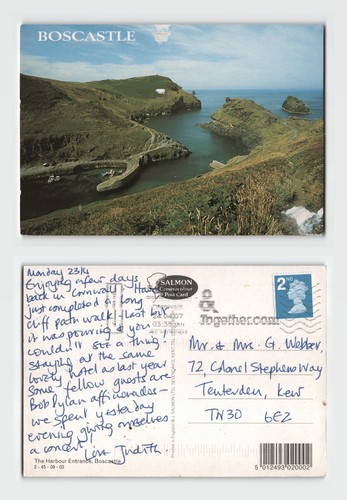 BOSCASTLE
Monday 23rd
Enjoying a few days
back in Cornwall. Have
just completed a long
cliff path walk - last bit
it was pouring & you
couldn't see a thing!
Staying at the same
lovely hotel as last year
Some fellow guests are
Bob Dylan afficionados -
we spent yesterday
evening giving ourselves
a concert! Love Judith.
The Harbour Entrance, Boscastle
2-45-09-03
SALMON
Cameracolour
Post Card
2007
Together.com
2ND
Mr. & Mrs. G. Webber
72, Colonel Stephens Way
Tenterden, Kent
TN30 6EZ
5 012493 020002